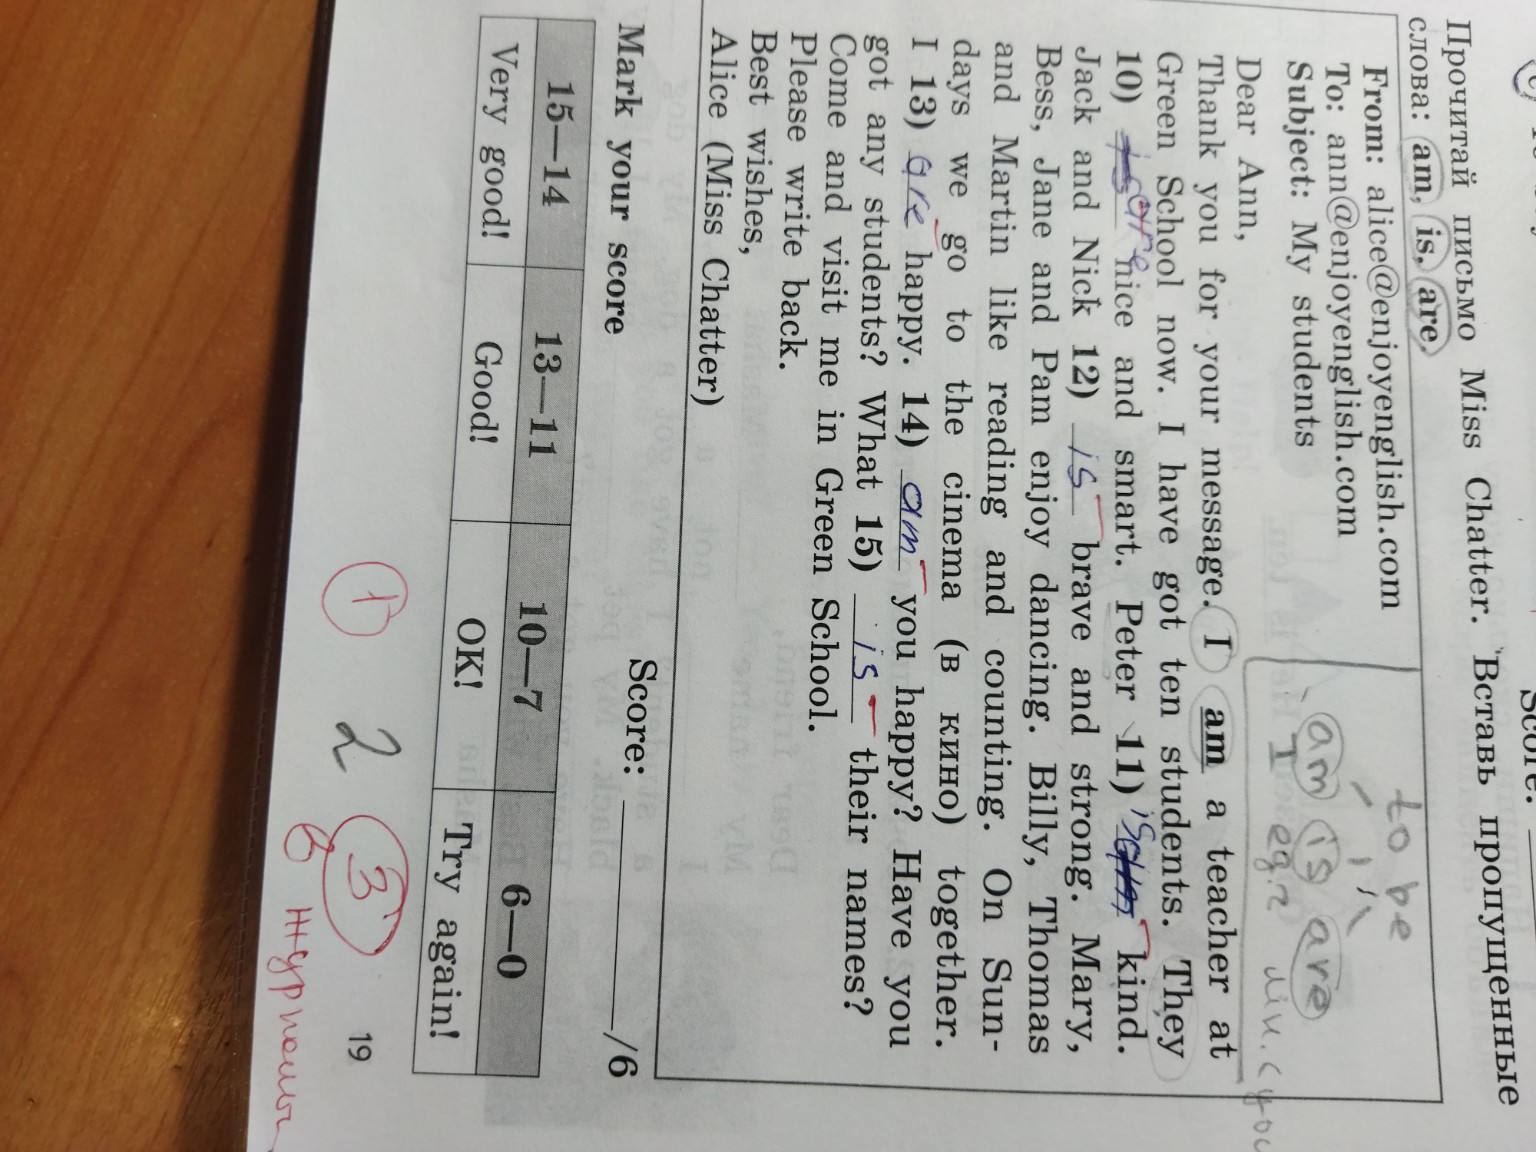 Score:
Прочитай письмо Miss Chatter. Вставь пропущенные
слова: am, is, are.
From: alice@enjoyenglish.com
To: ann@enjoyenglish.com
Subject: My students
to be
am is are
I ед.ч мн.ч you
Dear Ann,
Thank you for your message. I am a teacher at
Green School now. I have got ten students. They
10) is are nice and smart. Peter 11) is kind.
Jack and Nick 12) is brave and strong. Mary,
Bess, Jane and Pam enjoy dancing. Billy, Thomas
and Martin like reading and counting. On Sun-
days we go to the cinema (в кино) together.
I 13) are happy. 14) am you happy? Have you
got any students? What 15) is their names?
Come and visit me in Green School.
Please write back.
Best wishes,
Alice (Miss Chatter)
Score: /6
Mark your score
15—14 13—11 10—7 6—0
Very good! Good! OK! Try again!
1 2 3 19
в журналы